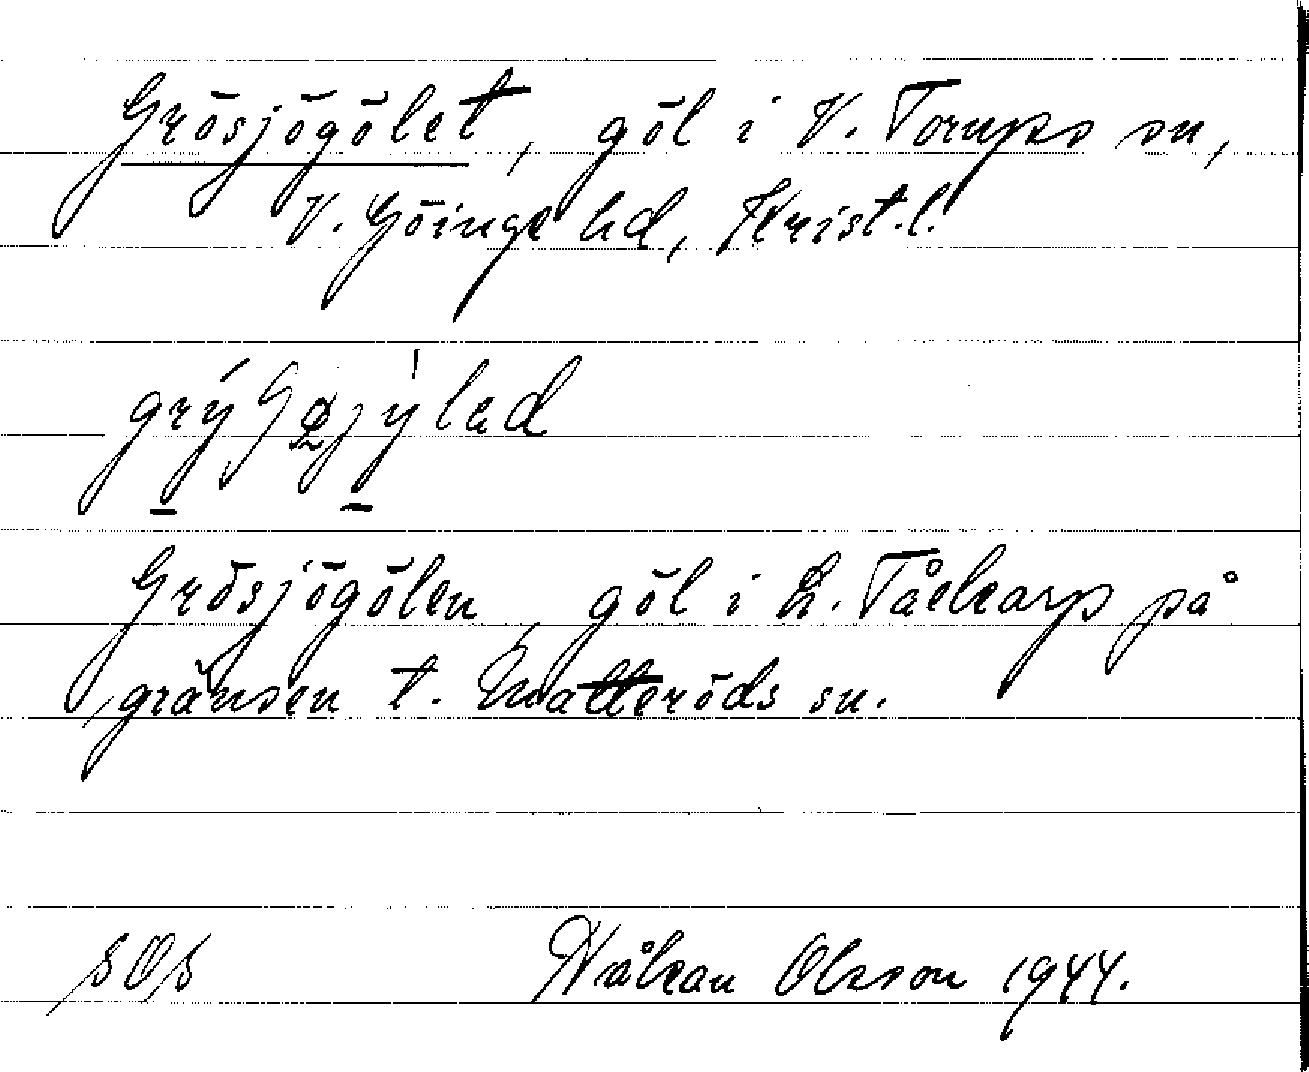 Grösjögölet, göl i V. Torups sn,
V. Göinge hd, Krist. l.
Grösjögölen, göl i L. Tåckarp på
gränsen t. Matteröds sn.
sOs Håkan Olsson 1944.